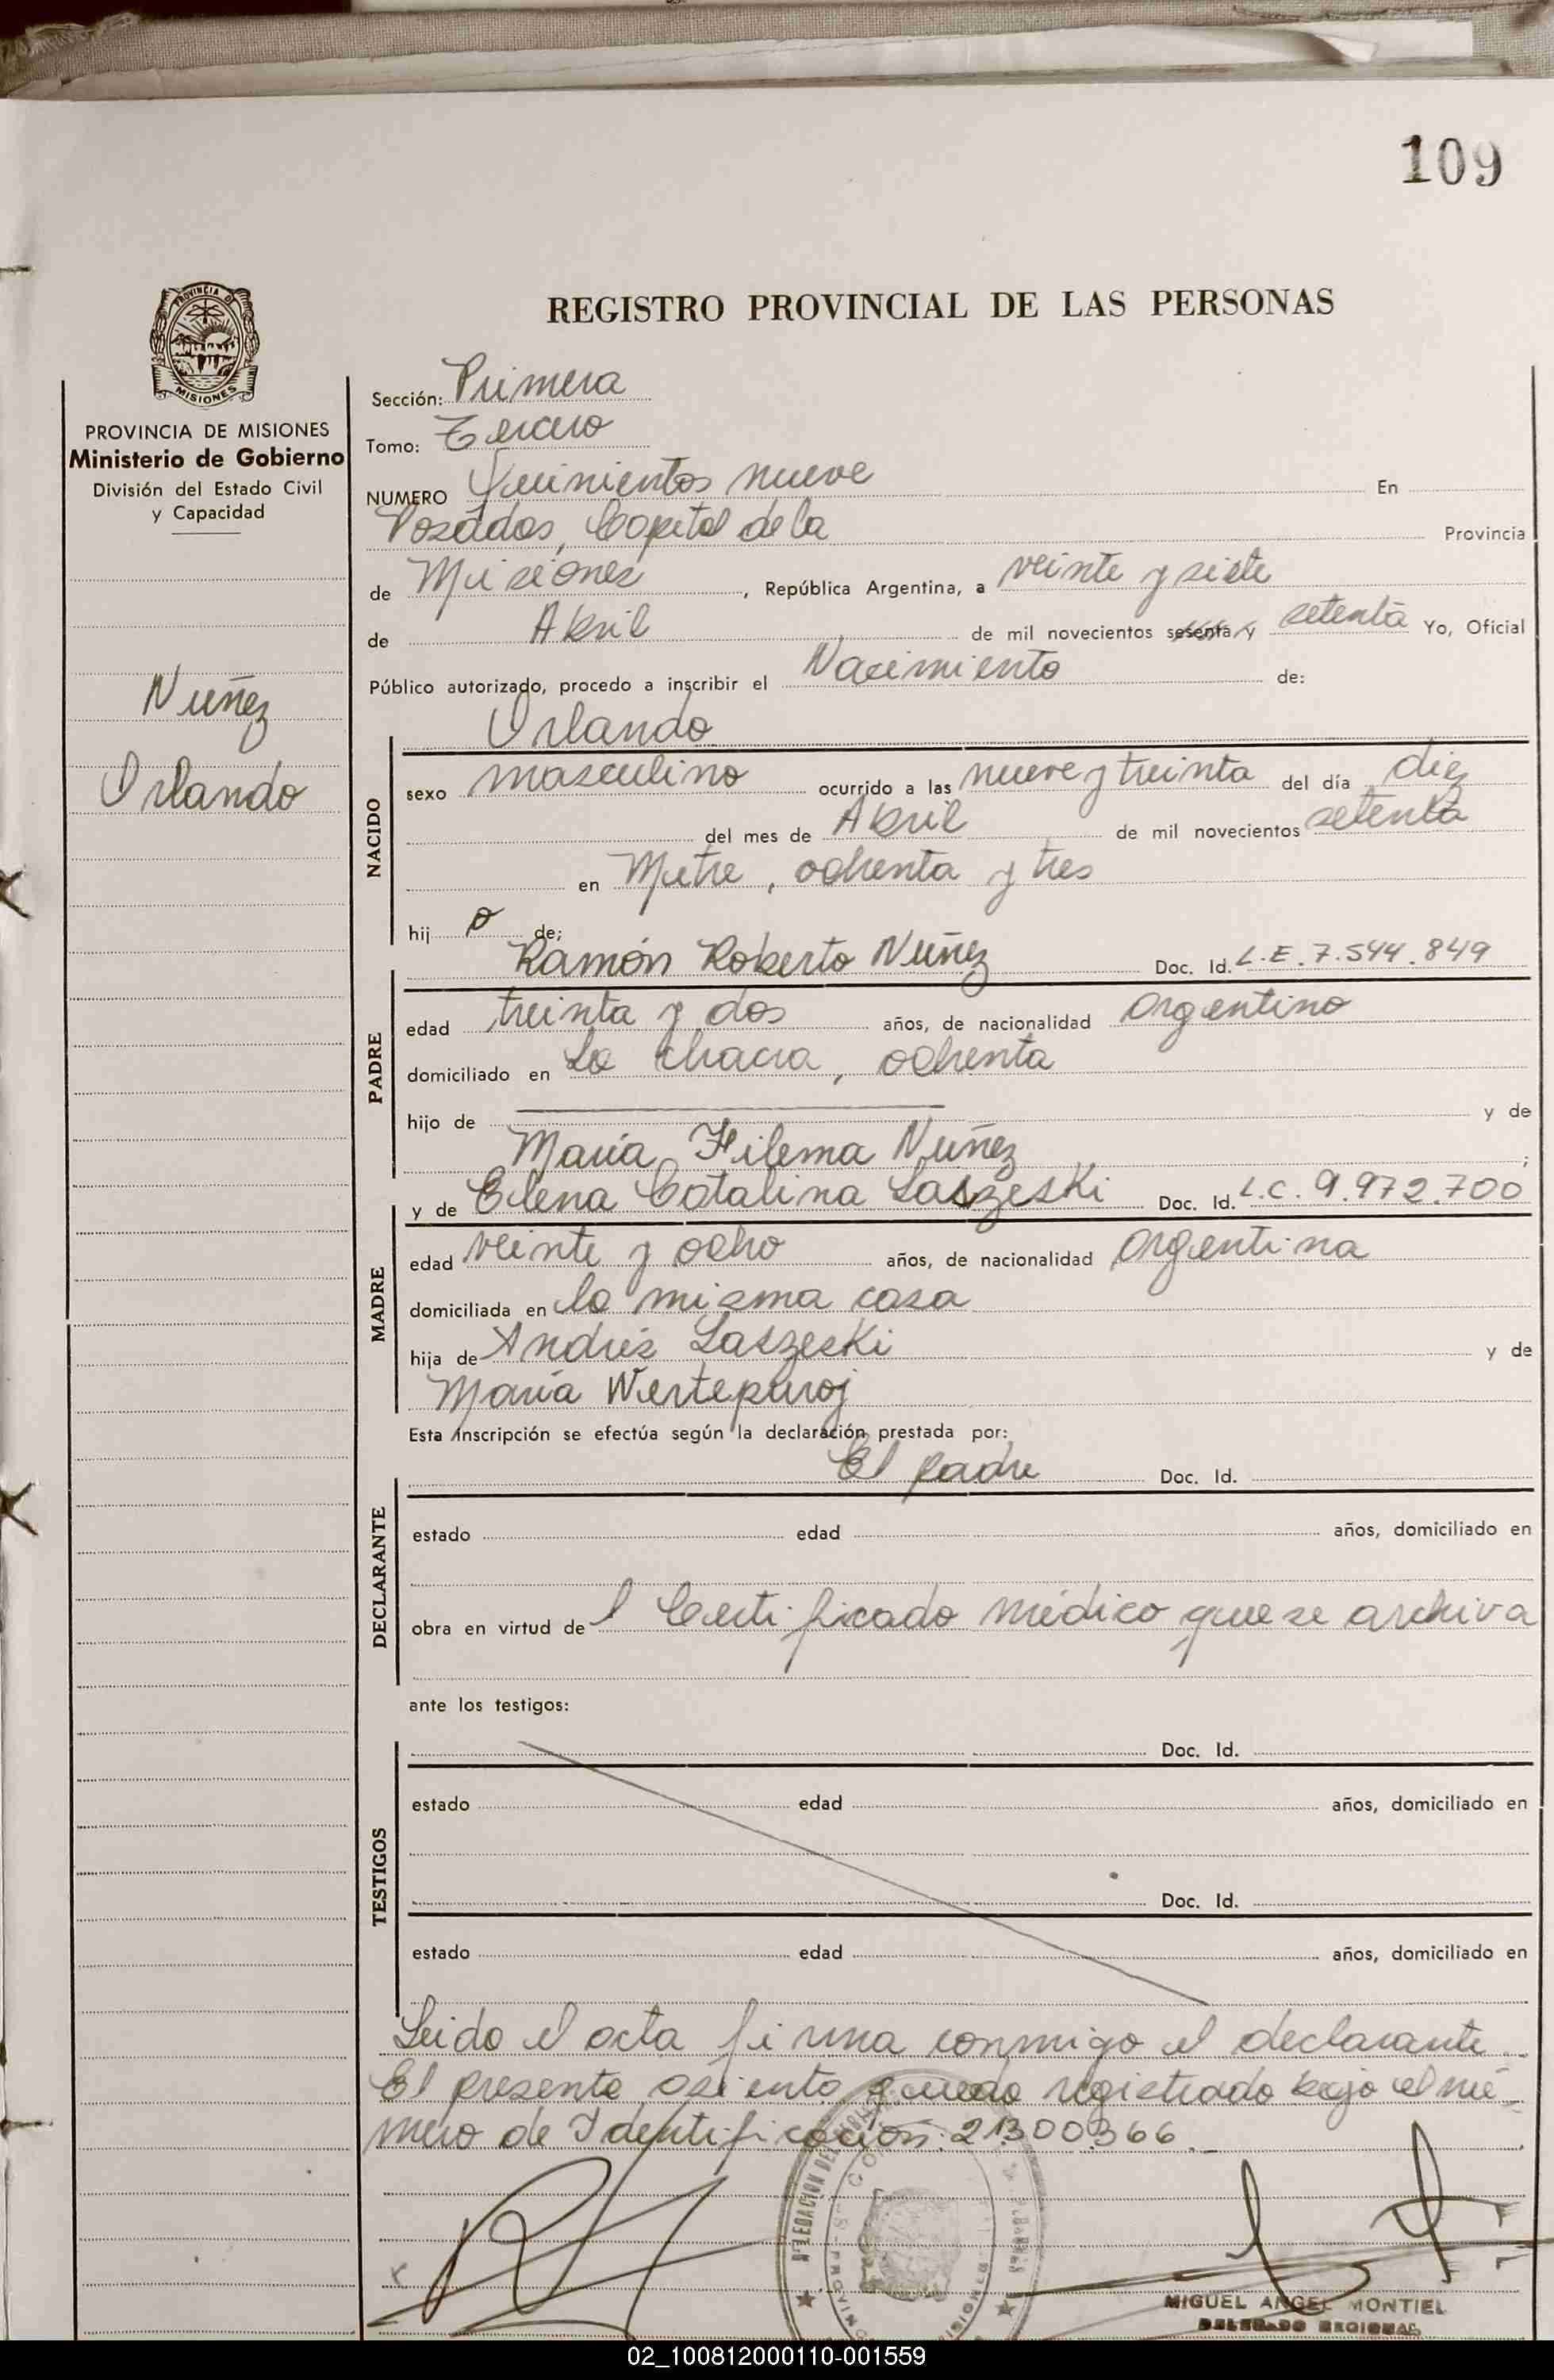 109
REGISTRO PROVINCIAL DE LAS PERSONAS
PROVINCIA DE MISIONES
PROVINCIA DE MISIONES
Ministerio de Gobierno
División del Estado Civil
y Capacidad
Nuñez
Orlando
Sección: Primera
Tomo: Tercero
NUMERO Quinientos nueve En
Posadas, Capital de la Provincia
de Misiones, República Argentina, a veinte y siete
de Abril de mil novecientos sesenta y setenta Yo, Oficial
Público autorizado, procedo a inscribir el Nacimiento de:
Orlando
NACIDO
sexo masculino ocurrido a las nueve y treinta del día diez
del mes de Abril de mil novecientos setenta
en Mitre, ochenta y tres
hijo de:
Ramón Roberto Nuñez Doc. Id. L.E. 7.544.849
PADRE
edad treinta y dos años, de nacionalidad argentino
domiciliado en La chacra, ochenta
hijo de y de
María Filema Nuñez;
y de Elena Catalina Laszeski Doc. Id. L.C. 9.972.700
MADRE
edad veinte y ocho años, de nacionalidad argentina
domiciliada en la misma casa
hija de Andrés Laszeski y de
María Werteparoj
Esta inscripción se efectúa según la declaración prestada por:
El padre Doc. Id.
DECLARANTE
estado edad años, domiciliado en
obra en virtud del Certificado médico que se archiva
ante los testigos:
TESTIGOS
Doc. Id.
estado edad años, domiciliado en
Doc. Id.
estado edad años, domiciliado en
Leido el acta firma conmigo el declarante.
El presente asiento queda registrado bajo el nú-
mero de Identificación: 21300366.
MIGUEL ANGEL MONTIEL
DELEGADO REGIONAL
02_100812000110-001559